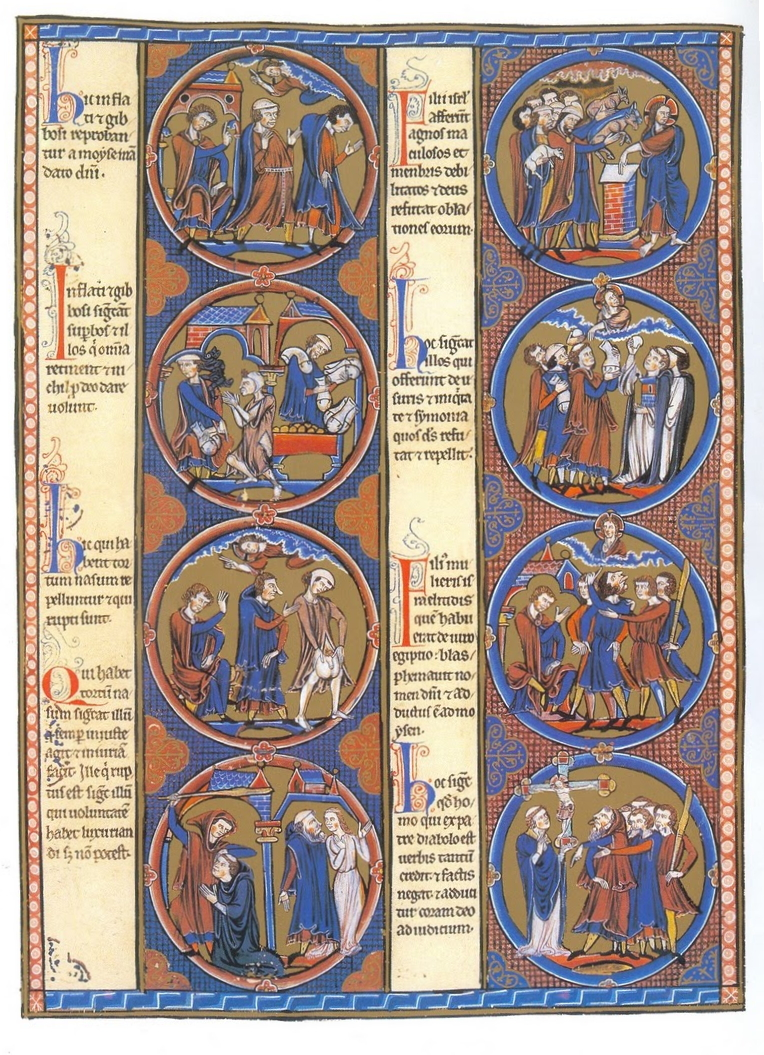 Hic infla
ti & gib
bosi reproban
tur a moyse mā
dato dn̄i.
Inflati & gib
bosi sigcāt
supbos & il
los q̄ omīa
retinent & ni
chil p deo dare
uolunt.
Hic qui ha
bent tor
tum nasum re
pelluntur & qui
rupti sunt.
Qui habet
tortū na
sum sigcat illū
q̄ semp iniuste
agit & iniuriā
facit. Ille q̄ rup
tus est sigc illū
qui uoluntatē
habet luxurian
di sȝ nō potest.
Filii isrl'
afferūt
agnos ma
culosos et
menbris debi
litatos & deus
refutat obla
tiones eorum.
Hoc sigcat
illos qui
offerunt de u
suris & iniq̇ta
te & symonia
quos ds̄ refu
tat & repellit.
Filiꝰ mu
lieris is
raelitidis
quē habu
erat de uiro
egiptio: blas
phemauit no
men dn̄i & ad
ductus ē ad mo
ysen.
Hoc sigc
qd ho
mo qui ex pa
tre diabolo est
uerbis tantū
credit & factis
negat & adduci
tur coram deo
ad iudicium.